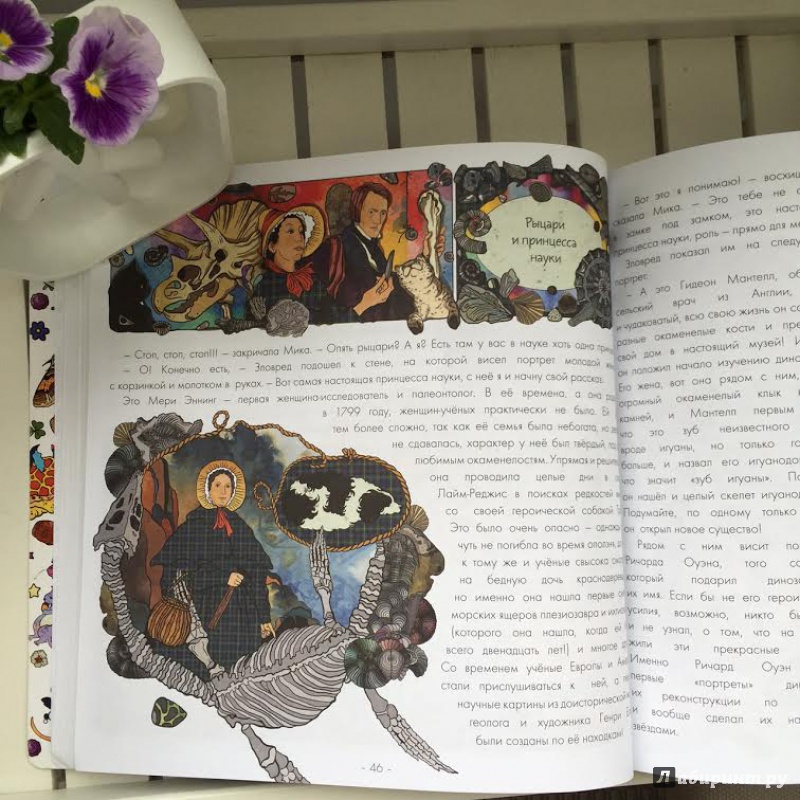 Рыцари
и принцесса
науки
– Стоп, стоп, стоп!!! – закричала Мика. – Опять рыцари? А я? Есть там у вас в науке хоть одна
– О! Конечно есть, – Зловред подошел к стене, на которой висел портрет молодой
с корзинкой и молотком в руках. – Вот самая настоящая принцесса науки, с неё я и начну свой рассказ.
Это Мери Эннинг – первая женщина-исследователь и палеонтолог. В её времена, а она
в 1799 году, женщин-учёных практически не было. Ей
тем более сложно, так как её семья была небогата, но
не сдавалась, характер у неё был твёрдый,
любимым окаменелостям. Упрямая и
она проводила целые дни в
Лайм-Реджис в поисках редкостей
со своей героической собакой
Это было очень опасно – однажды
чуть не погибла во время оползня,
к тому же и учёные свысока
на бедную дочь краснодеревщика
но именно она нашла первые
морских ящеров плезиозавра и
(которого она нашла, когда ей
всего двенадцать лет!) и многое
Со временем учёные Европы и
стали прислушиваться к ней, а
научные картины из доисторической
геолога и художника Генри
были созданы по её находкам!
- 46 -
– Вот это я понимаю! –
сказала Мика. – Это тебе не
замке под замком, это
принцесса науки, роль – прямо для
Зловред показал им на
портрет.
– А это Гидеон Мантелл,
сельский врач из Англии,
и чудаковатый, всю свою жизнь он
разные окаменелые кости и
свой дом в настоящий музей! И
он положил начало изучению
Его жена, вот она рядом с ним,
огромный окаменелый клык
камней, и Мантелл первым
что это зуб неизвестного
вроде игуаны, но только
больше, и назвал его
что значит «зуб игуаны».
он нашёл и целый скелет
Подумайте, по одному только
он открыл новое существо!
Рядом с ним висит
Ричарда Оуэна, того
который подарил
их имя. Если бы не его
усилия, возможно, никто бы
и не узнал, о том, что на
жили эти прекрасные
Именно Ричард Оуэн
первые «портреты»
их реконструкции по
и вообще сделал их
звёздами.
Лабиринт.ру